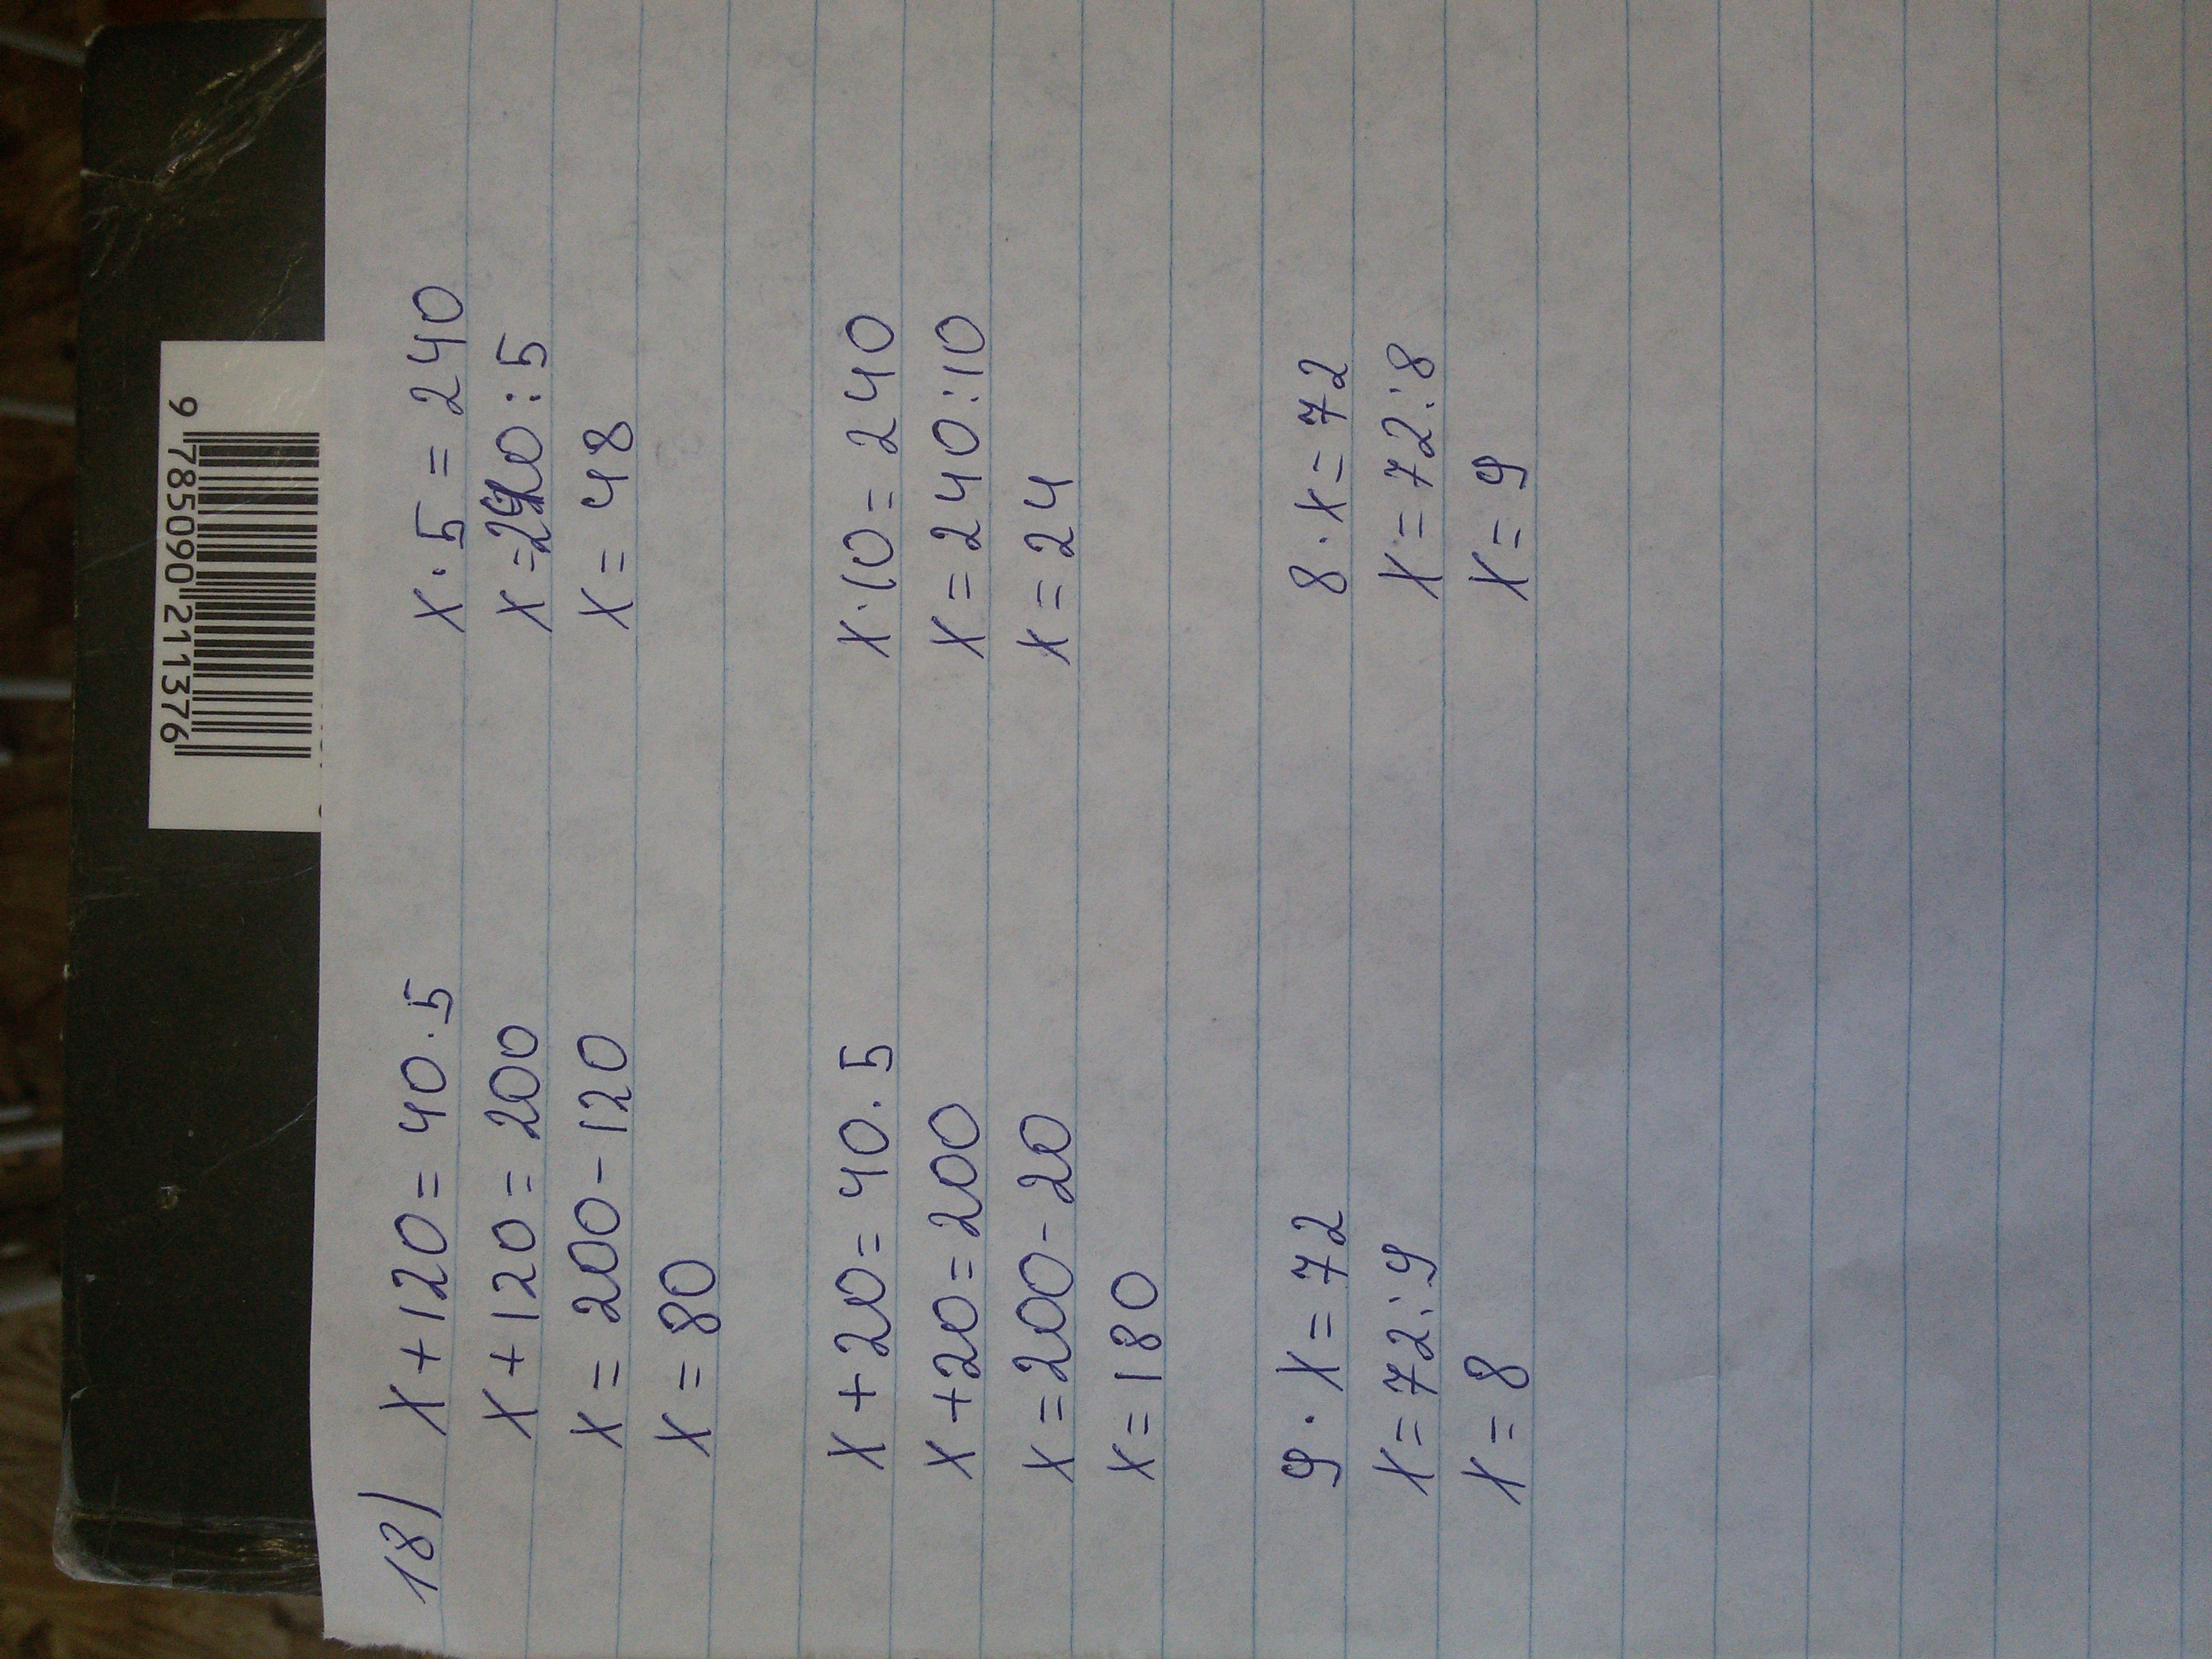 18) x + 120 = 40 · 5
x + 120 = 200
x = 200 - 120
x = 80
x · 5 = 240
x = 240 : 5
x = 48
x + 20 = 40 · 5
x + 20 = 200
x = 200 - 20
x = 180
x · 10 = 240
x = 240 : 10
x = 24
9 · x = 72
x = 72 : 9
x = 8
8 · x = 72
x = 72 : 8
x = 9
9 785090 211376